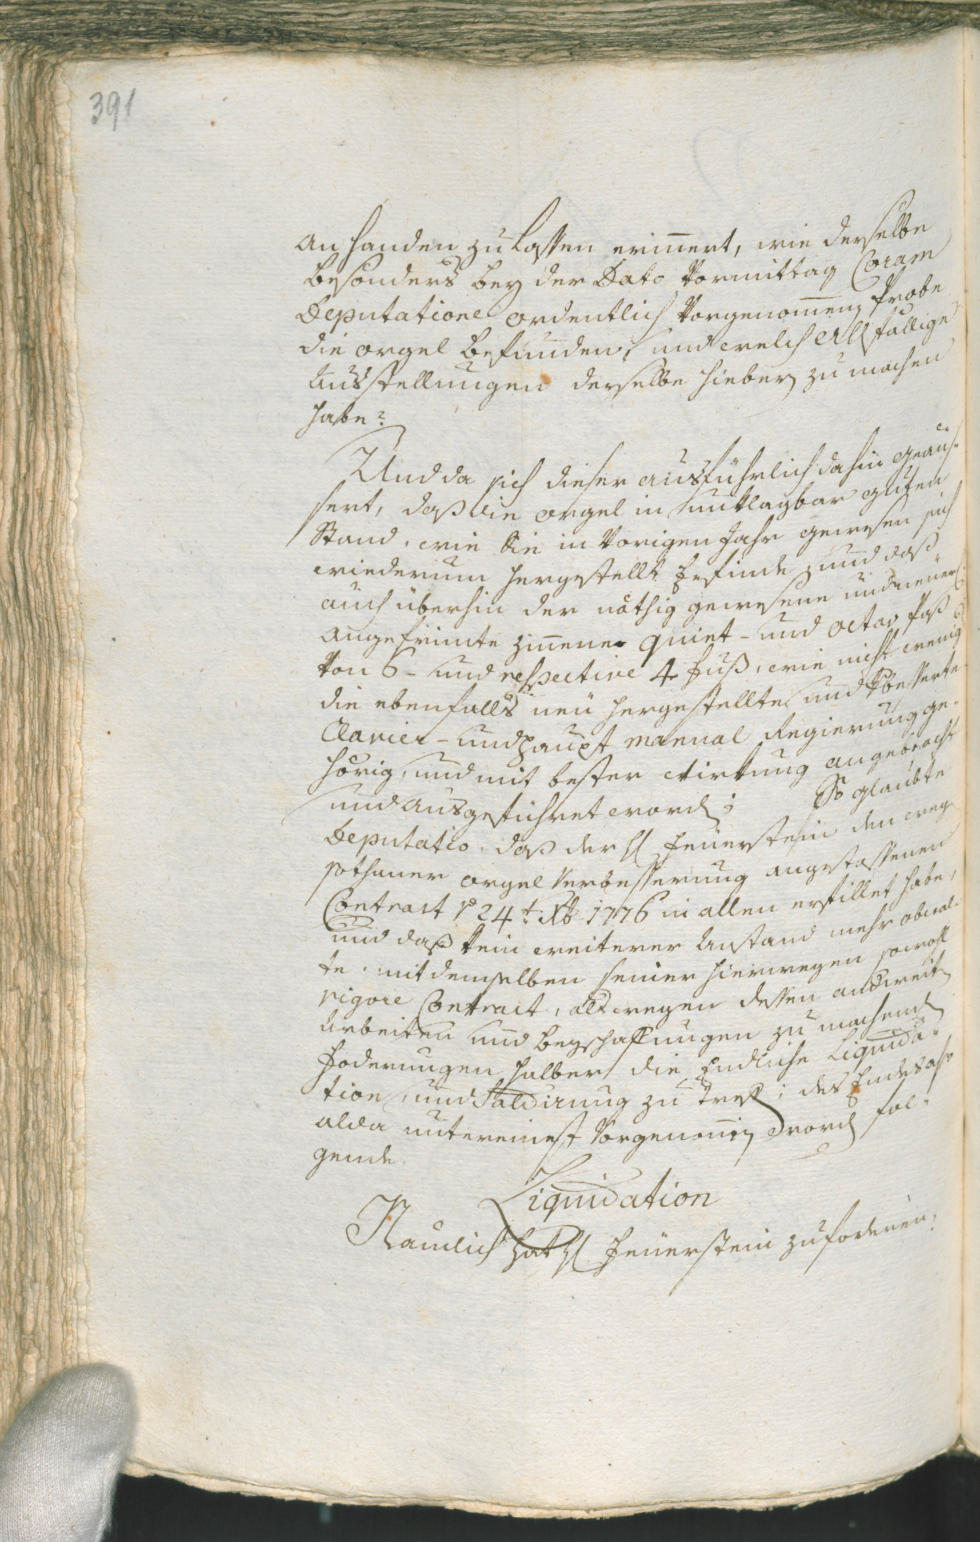 391
an handen zu lassen erinnert, wie derselbe
besonders bey der Dato Vormittag Coram
Deputatione ordentlich vorgenommen Probe
die orgel befunden, und welch allfällige
Ausstellungen derselbe hieber zu machen
habe?
Und da sich dieser ausführlich dahin geäus-
sert, daß die orgel in unklagbar guten
Stand, wie Sie in vorigen Jahr gewesen sich
wiederum hergestellt befinde, und daß
auch überhin der nöthig gewesene und neuer
angefrimte zinnene quint- und octav Paß
von 6- und respective 4 Fuß, wie nicht wenig
die ebenfalls neü hergestellte und verbesserte
Clavier- und haupt manual Regierung ge-
hörig, und mit bester Wirkung angebracht
und ausgeführet word; So glaubte
Deputatio, daß der H Feüerstein den weg
sothaner orgel Verbesserung angestossenen
Contract 24t. Xb 1776 in allen erfillet habe,
und daß kein weiterer Anstand mehr obwal-
te, mit demselben hierwegen sowohl
vigore Contract, alß wegen dessen andweit
Arbeiten und beyschaffungen zu machend
foderungen halber die Endliche Liquida-
tion, und Saldirung zu treff; des Endes also
alda untereinest vorgenommen word fol-
gende
Liquidation
Nämlich hat H Feüerstein zu foderen: